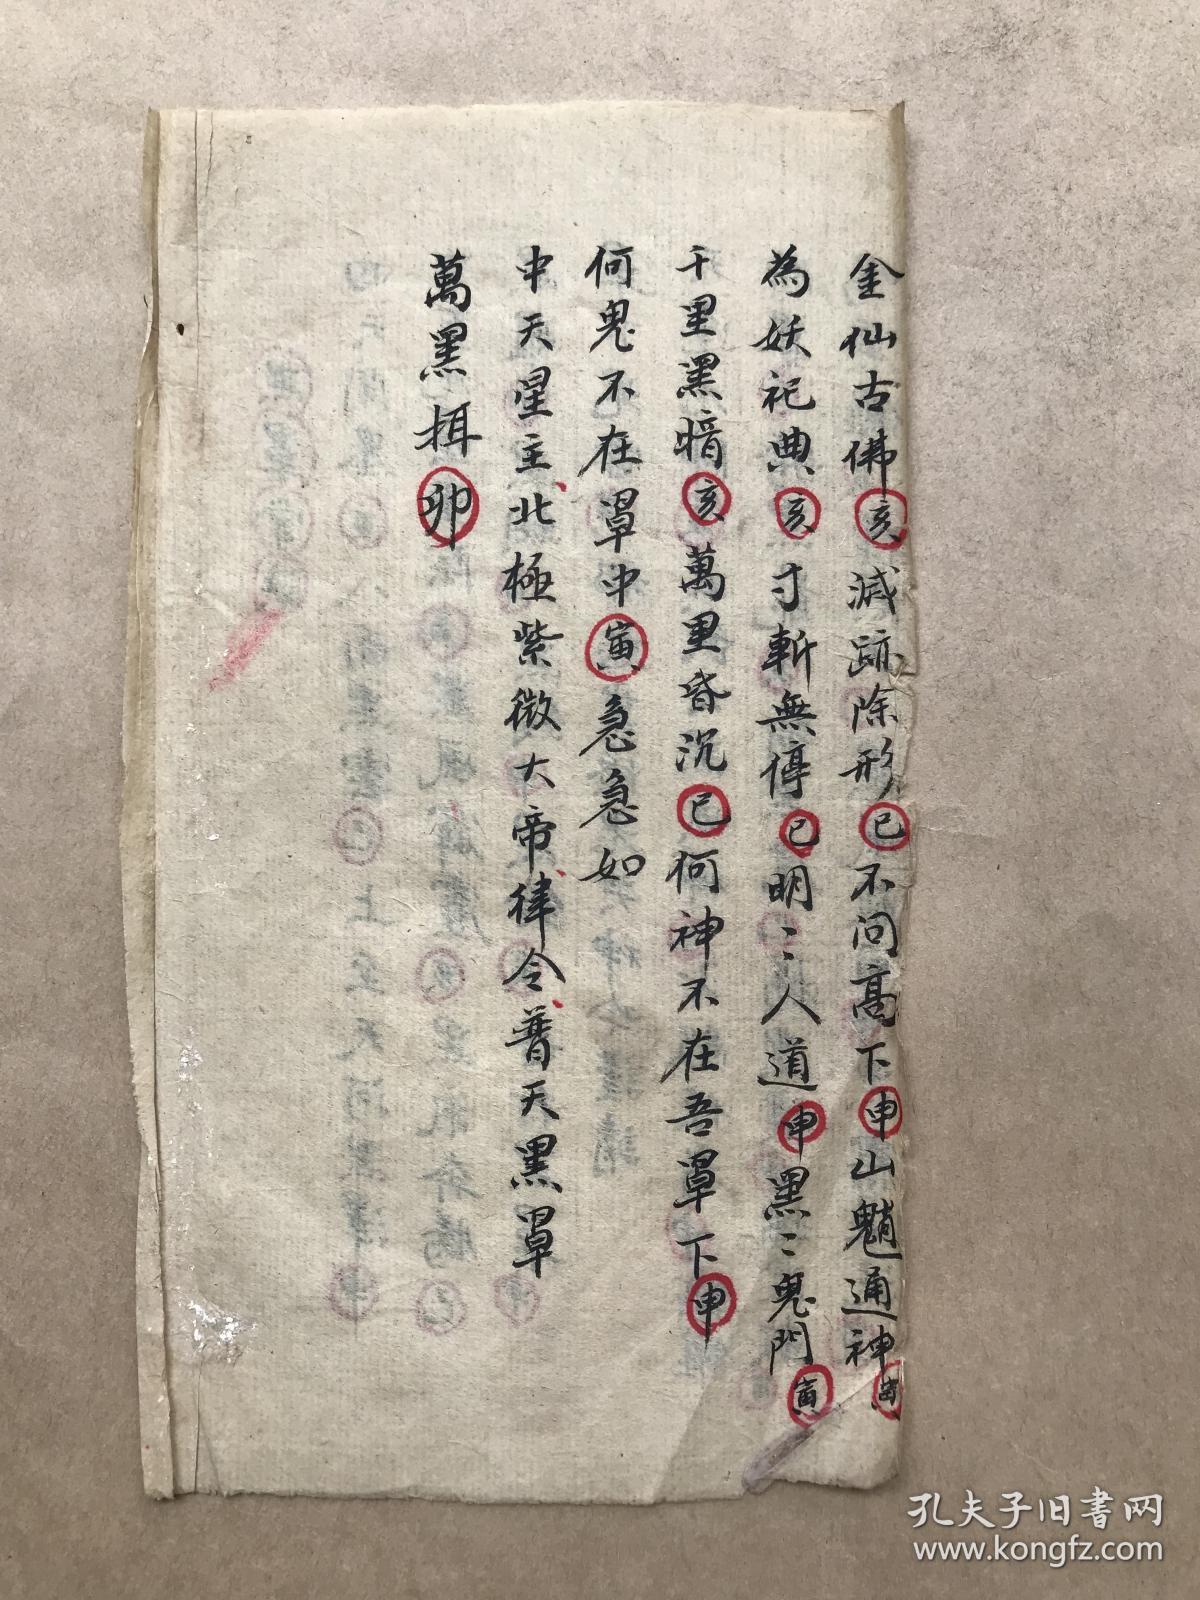 金仙古佛亥減跡除形巳不问高下申山魈通神寅
為妖祀典亥寸斬無停巳明〻人道申黑〻鬼門寅
千里黑暗亥萬里昏沉巳何神不在吾罩下申
何鬼不在罩中寅急急如
中天星主、北極紫微大帝、律令、普天黑罩
萬黑揖卯
孔夫子旧書网
www.kongfz.com